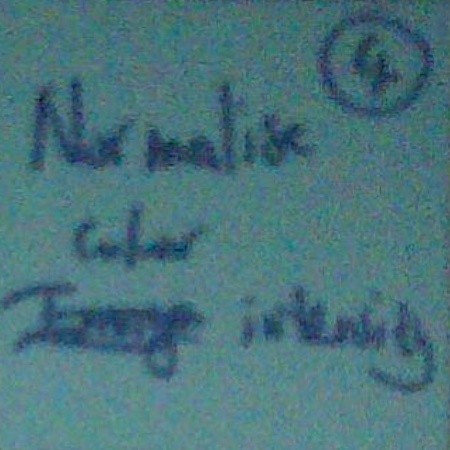 4
Normalise
Color
Image intensity